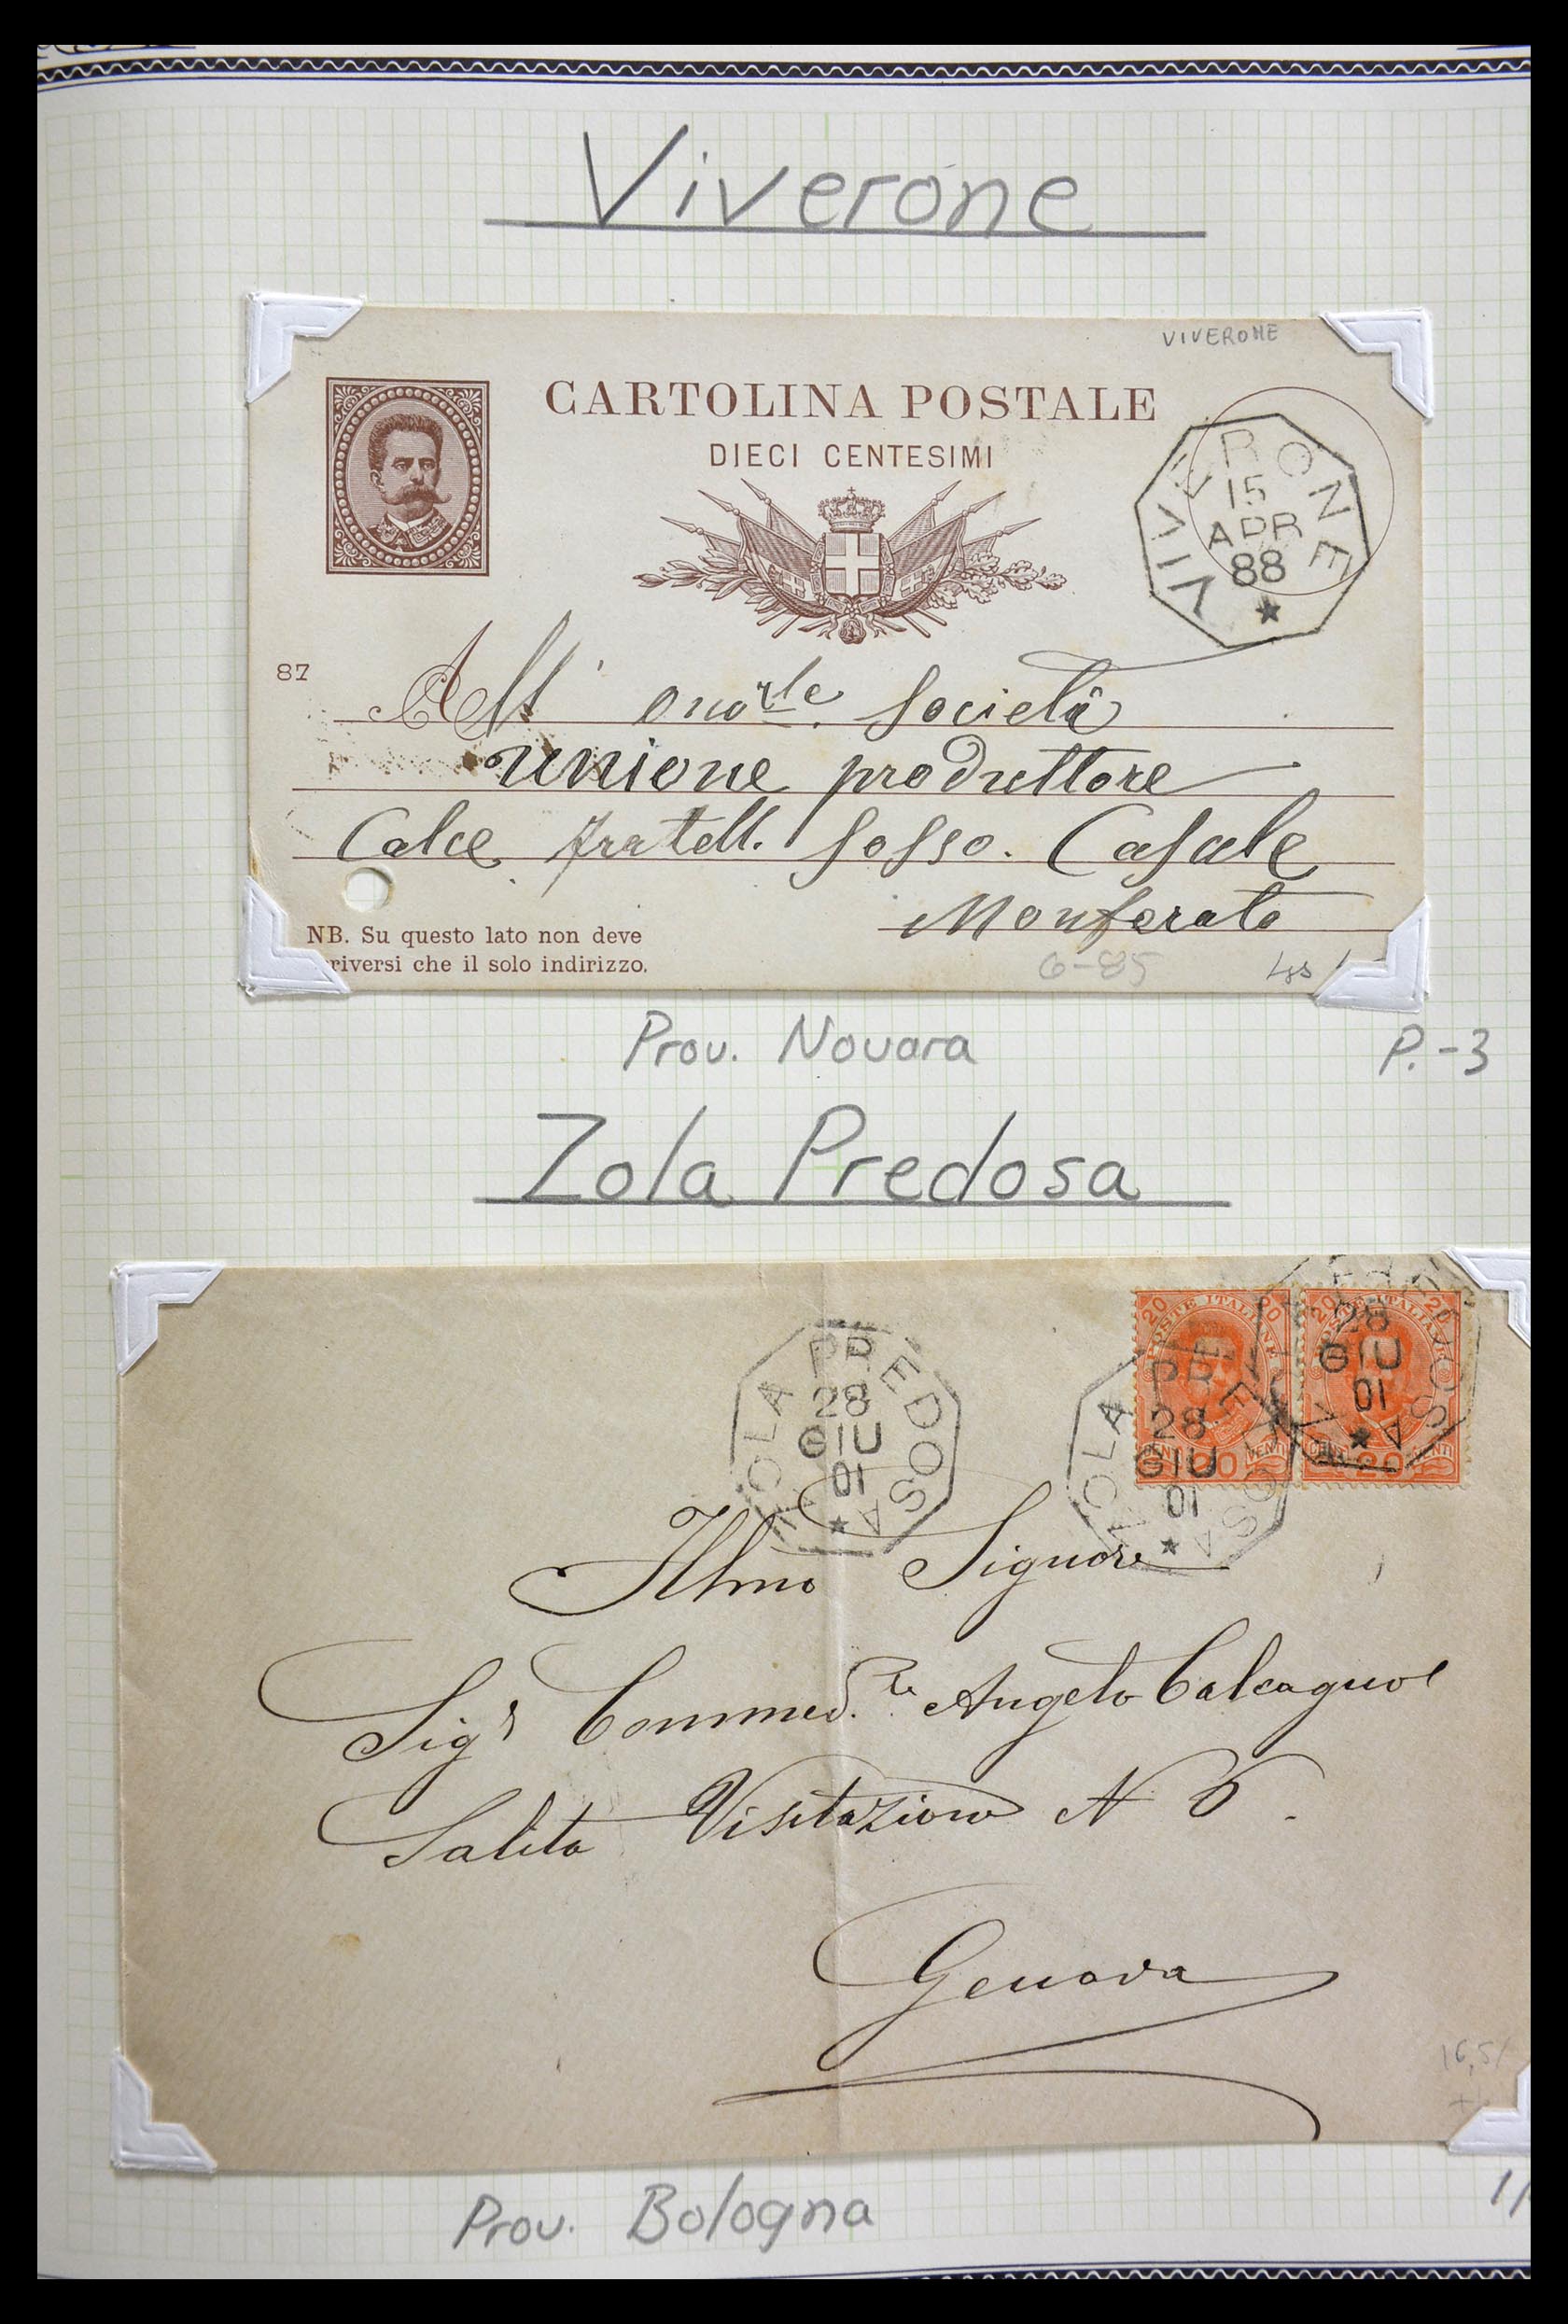 Viverone
VIVERONE
CARTOLINA POSTALE
DIECI CENTESIMI
VIVERONE
15
APR
88
87
All' onorle Società
unione produttore
Calce fratell. Sosso. Casale
Monferato
NB. Su questo lato non deve
riversi che il solo indirizzo.
6-85
Prov. Novara
P.-3
Zola Predosa
POSTE ITALIANE
20 20
CENT VENTI
20
POSTE ITALIANE
20 20
CENT VENTI
20
ZOLA PREDOSA
28
GIU
01
ZOLA PREDOSA
28
GIU
01
ZOLA PREDOSA
28
GIU
01
Illmo Signore
Sigr Commed.re Angelo Calcagno
Salita Visitazione N 6.
Genova
16,5/
Prov. Bologna